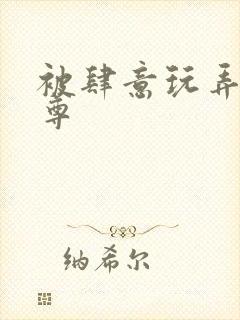 被肆意玩弄
尊
纳希尔